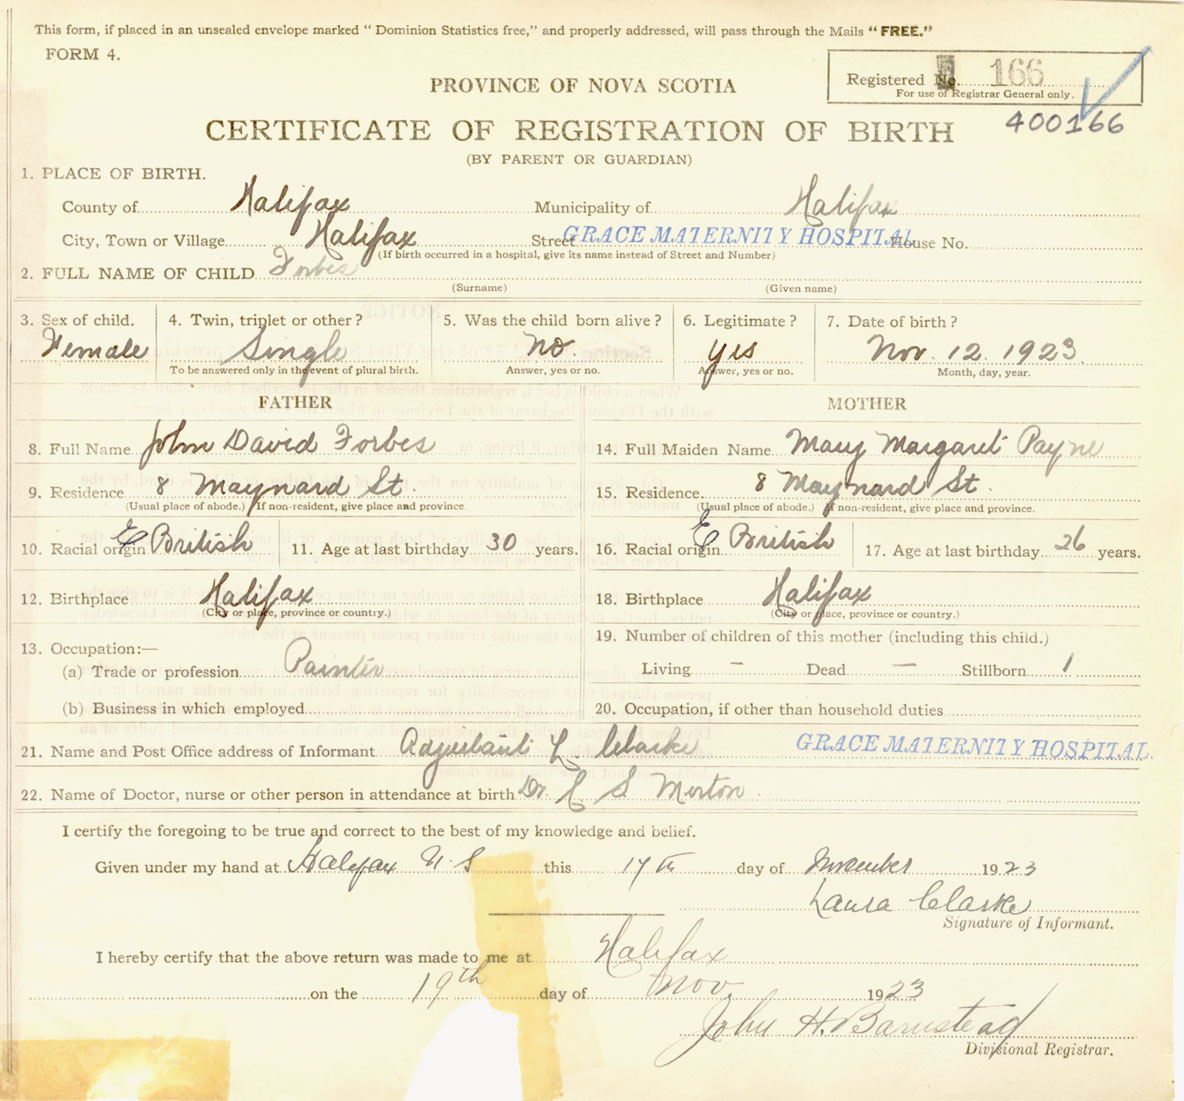 This form, if placed in an unsealed envelope marked “ Dominion Statistics free,” and properly addressed, will pass through the Mails “ FREE.”
FORM 4.
Registered No. 166
For use of Registrar General only.
PROVINCE OF NOVA SCOTIA
400166
CERTIFICATE OF REGISTRATION OF BIRTH
(BY PARENT OR GUARDIAN)
1. PLACE OF BIRTH.
County of Halifax Municipality of Halifax
City, Town or Village Halifax Street GRACE MATERNITY HOSPITAL House No.
(If birth occurred in a hospital, give its name instead of Street and Number)
2. FULL NAME OF CHILD Forbes
(Surname) (Given name)
3. Sex of child. 4. Twin, triplet or other? 5. Was the child born alive? 6. Legitimate? 7. Date of birth?
Female Single No. yes Nov. 12. 1923
To be answered only in the event of plural birth. Answer, yes or no. Answer, yes or no. Month, day, year.
FATHER MOTHER
8. Full Name John David Forbes 14. Full Maiden Name Mary Margaret Payne
9. Residence 8 Maynard St. 15. Residence. 8 Maynard St.
(Usual place of abode.) If non-resident, give place and province. (Usual place of abode.) If non-resident, give place and province.
10. Racial origin E British 11. Age at last birthday 30 years. 16. Racial origin E British 17. Age at last birthday 26 years.
12. Birthplace Halifax 18. Birthplace Halifax
(City or place, province or country.) (City or place, province or country.)
13. Occupation:— 19. Number of children of this mother (including this child.)
(a) Trade or profession Painter Living – Dead — Stillborn 1
(b) Business in which employed 20. Occupation, if other than household duties
21. Name and Post Office address of Informant Adjutant L. Clarke GRACE MATERNITY HOSPITAL.
22. Name of Doctor, nurse or other person in attendance at birth Dr. S Morton.
I certify the foregoing to be true and correct to the best of my knowledge and belief.
Given under my hand at Halifax N.S this 17th day of November 1923
Laura Clarke
Signature of Informant.
I hereby certify that the above return was made to me at Halifax
on the 19th day of Nov. 1923
John H. Barnstead
Divisional Registrar.